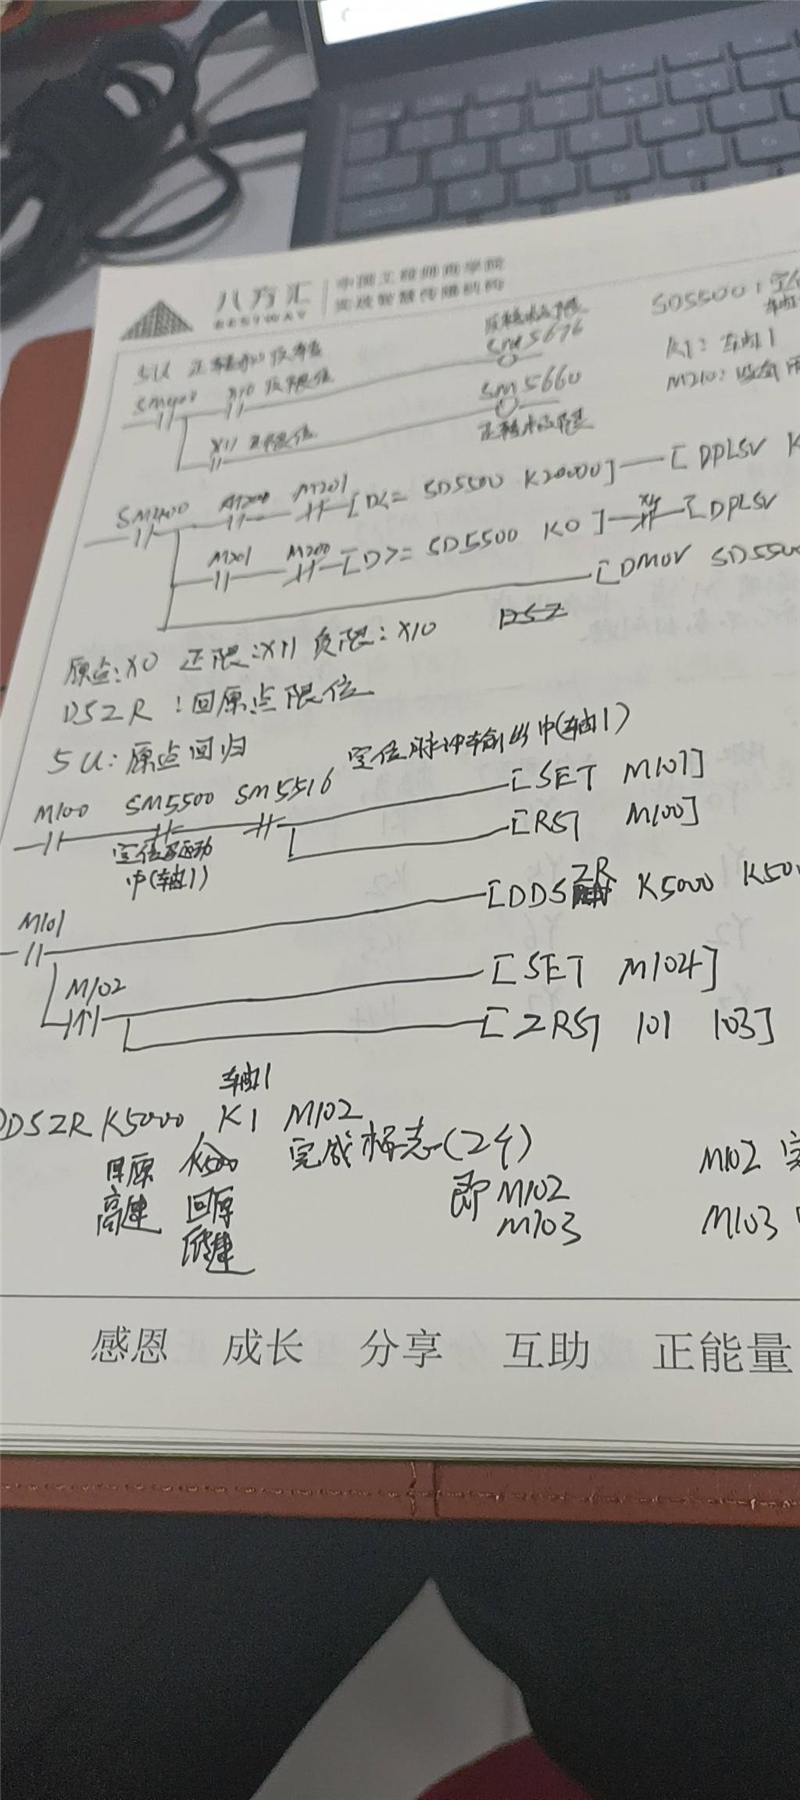 八方汇 中国工程师商学院
BESTWAY 实战智慧传播机构
5U 正转和反转
SM5676
SD5500:
SM400 X10 反限位
K1: 轴1
SM5660
M210:
X11 正限位
SM400 M200 M201 [D<= SD5500 K20000] [DPLSV K
M201 M200 [D>= SD5500 K0] [DPLSV
[DMOV SD5500
原点:X0 正限:X11 负限:X10
DSZR :回原点限位
5U:原点回归 定位脉冲输出中(轴1)
M100 SM5500 SM5516 [SET M101]
[RST M100]
定位驱动
中(轴1)
M101 [DDSZR K5000 K50
M102 [SET M104]
[ZRST 101 103]
轴1
DDSZR K5000 K1 M102
回原 K500 完成标志(2个)
高速 回原 即M102
M103
M102
M103
感恩 成长 分享 互助 正能量